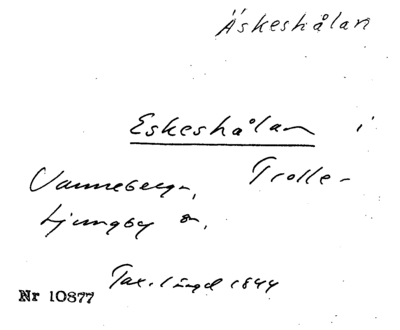 Äskeshålan
Eskeshålan i
Vanneberga, Trolle-
Ljungby sn,
Tax.längd 1844
Nr 10877